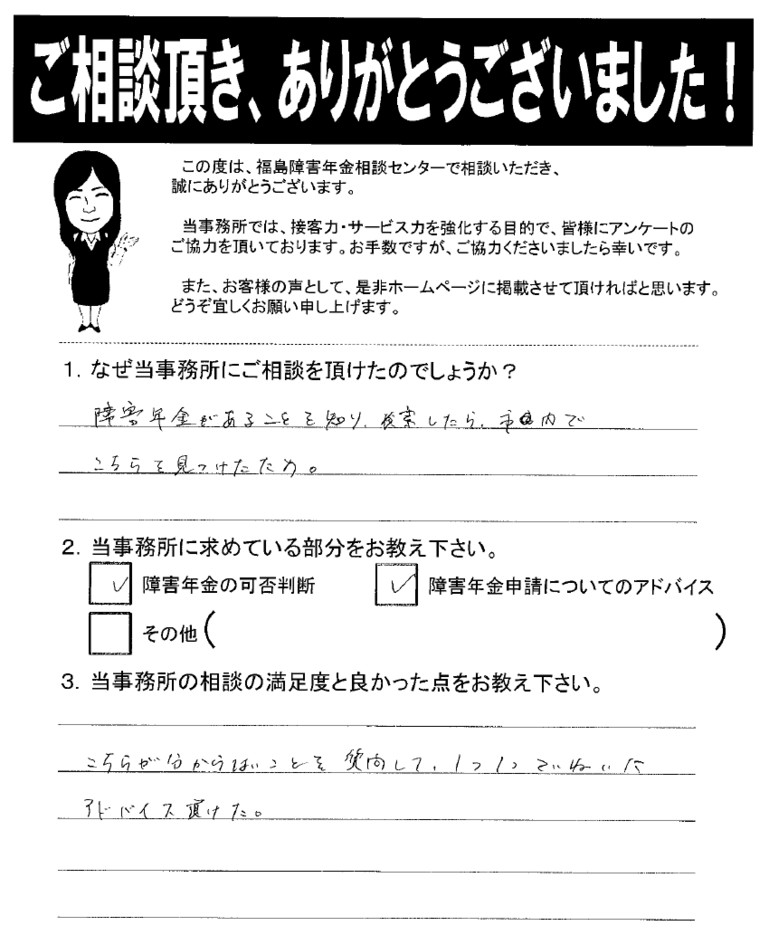 ご相談頂き、ありがとうございました！
この度は、福島障害年金相談センターで相談いただき、
誠にありがとうございます。
当事務所では、接客力・サービス力を強化する目的で、皆様にアンケートの
ご協力を頂いております。お手数ですが、ご協力くださいましたら幸いです。
また、お客様の声として、是非ホームページに掲載させて頂ければと思います。
どうぞ宜しくお願い申し上げます。
1．なぜ当事務所にご相談を頂けたのでしょうか？
障害年金があることを知り、検索したら、市内で
こちらを見つけたため。
2．当事務所に求めている部分をお教え下さい。
✓ 障害年金の可否判断 ✓ 障害年金申請についてのアドバイス
その他（ ）
3．当事務所の相談の満足度と良かった点をお教え下さい。
こちらが分からないことを質問して、1つ1つていねいに
アドバイス頂けた。